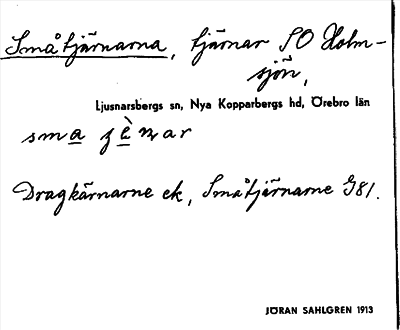 Småtjärnarna, tjärnar SO Holm-
sjön,
Ljusnarsbergs sn, Nya Kopparbergs hd, Örebro län
Dragkärnarne ek, Småtjärnarne G81.
JÖRAN SAHLGREN 1913